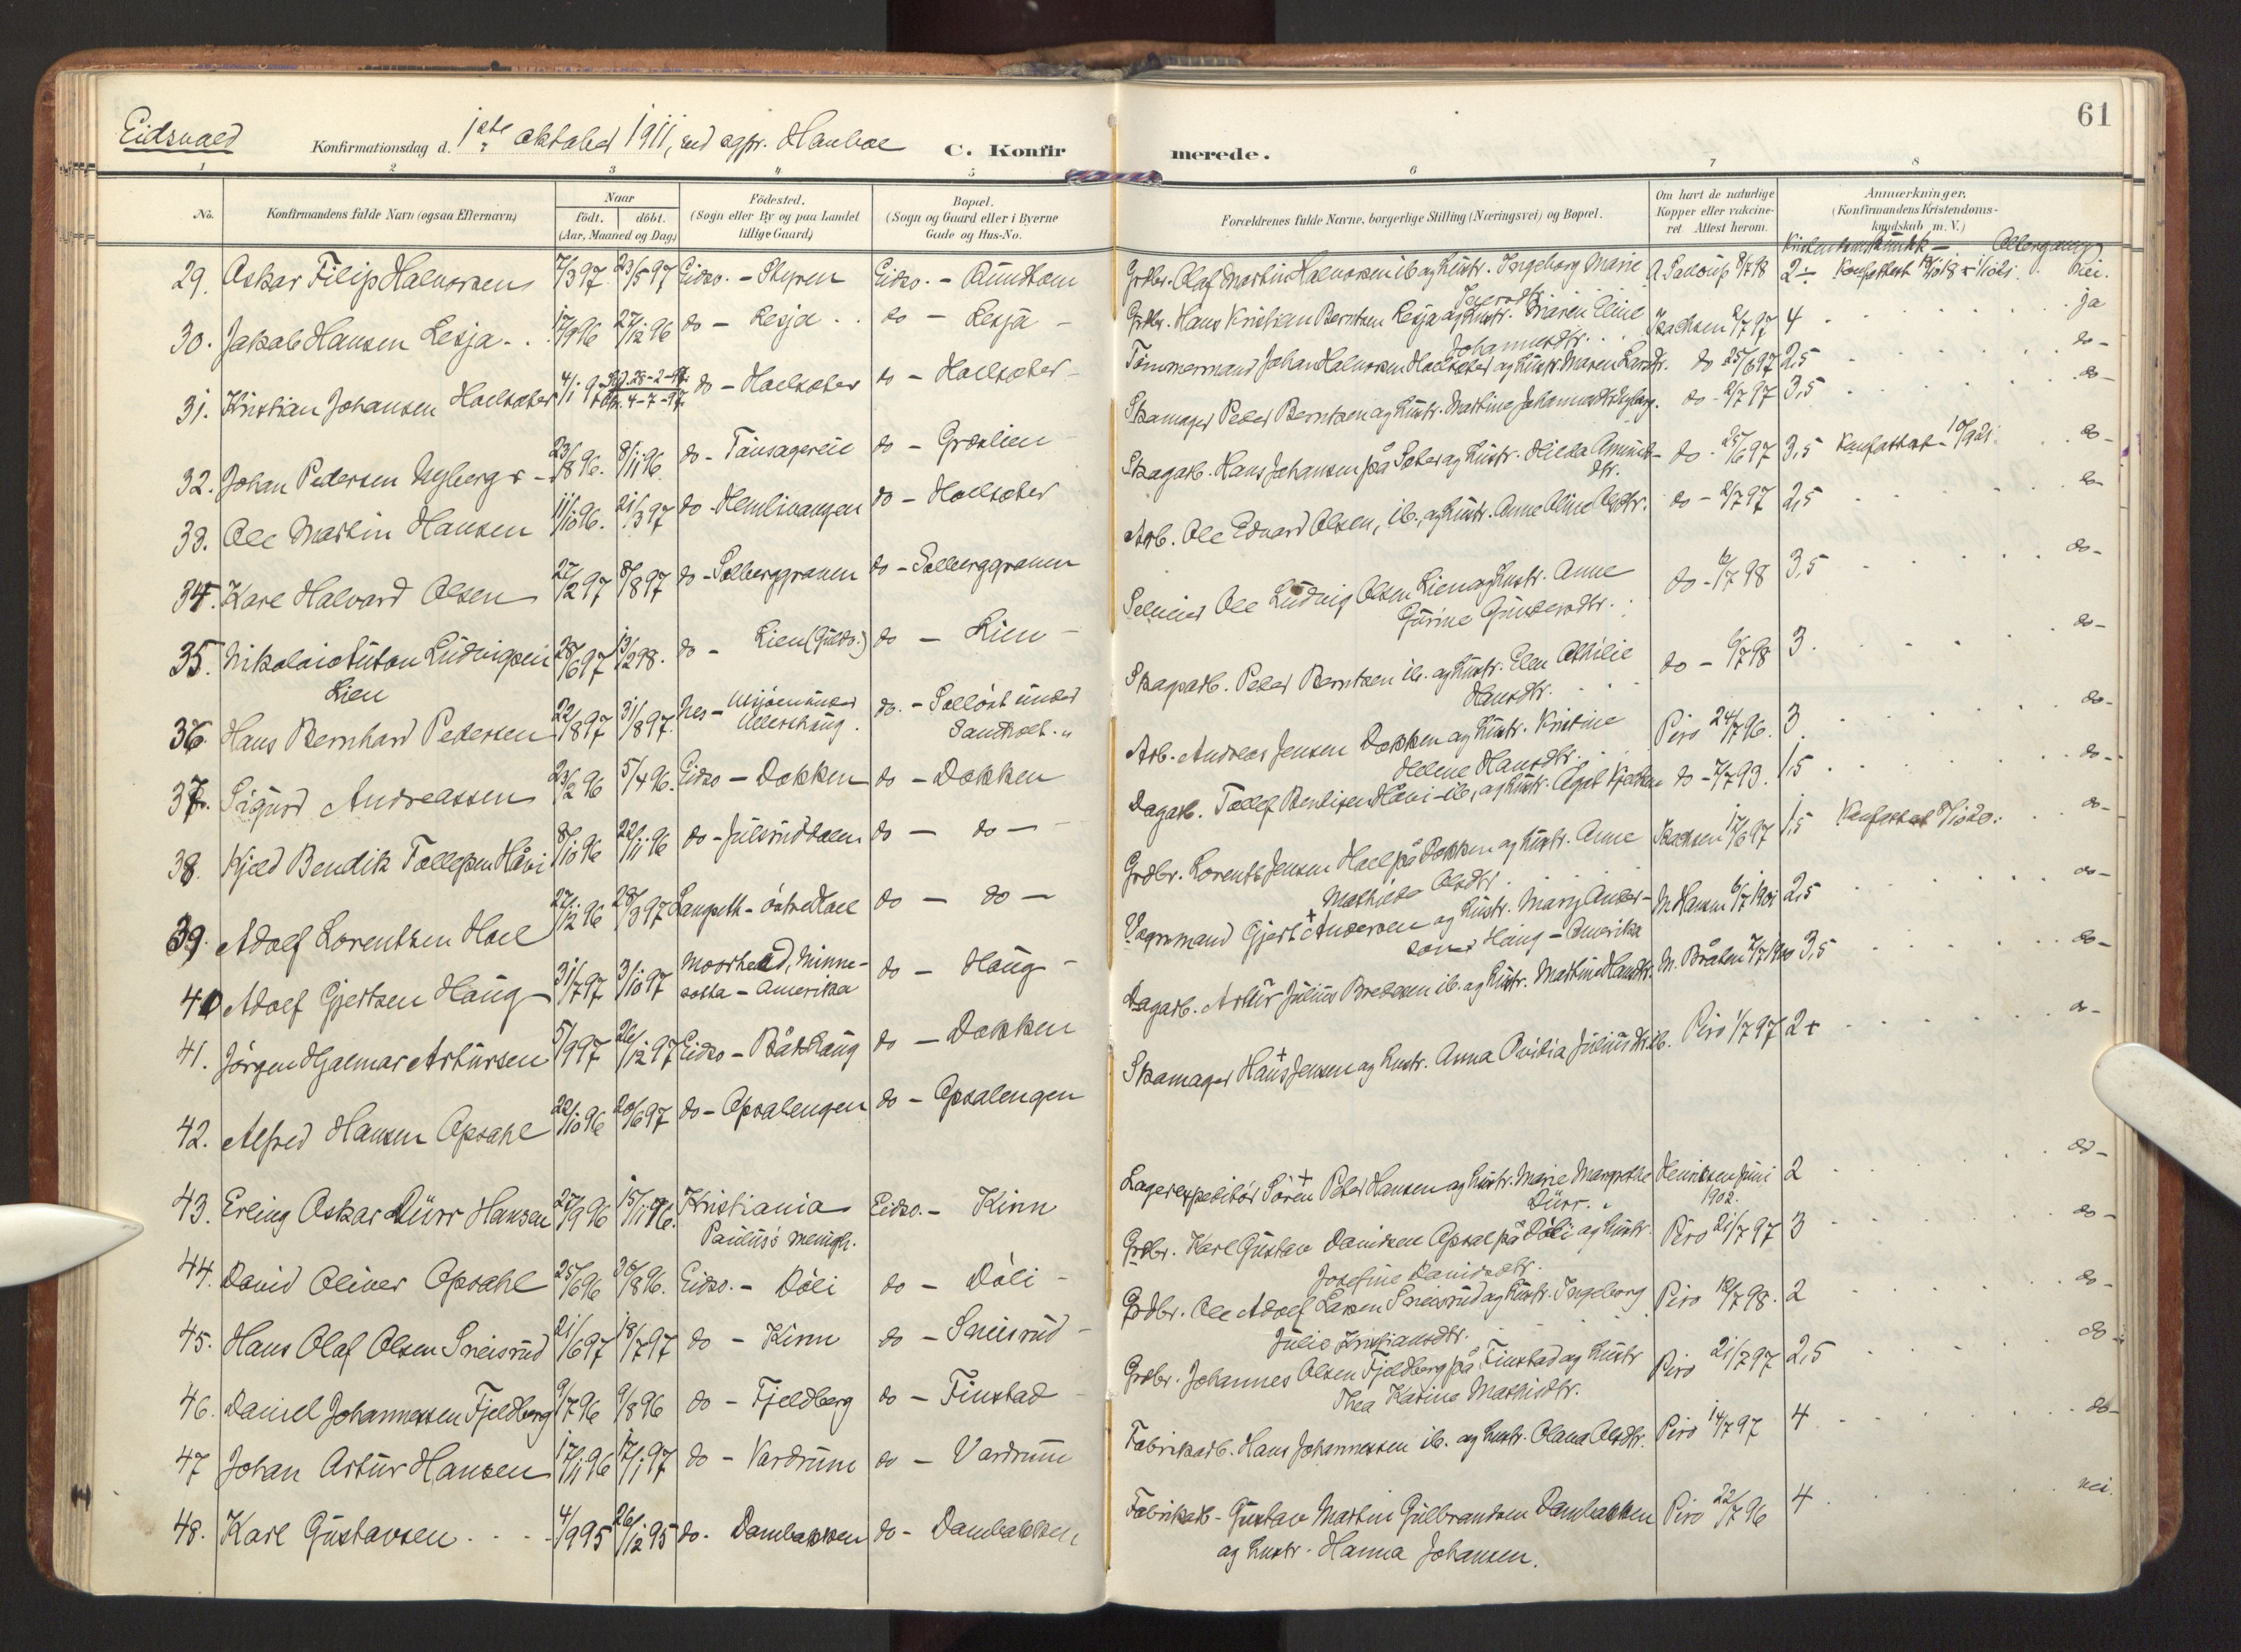 61
Eidsvold
Konfirmationsdag d. 1ste oktober 1911, ved sgpr. Hanboe C. Konfirmerede.
1 2 3 4 5 6 7 8
No. Konfirmandens fulde Navn (ogsaa Efternavn) Naar födt. döbt. (Aar, Maaned og Dag) Födested. (Sogn eller By og paa Landet tillige Gaard) Bopæl. (Sogn og Gaard eller i Byerne Gade og Hus-No. Forældrenes fulde Navne, borgerlige Stilling (Næringsvei) og Bopæl. Om havt de naturlige Kopper eller vakcineret Attest herom. Anmærkninger. (Konfirmandens Kristendomskundskab m. V.)
29. Oskar Filip Halvorsen 7/3 97 23/5 97 Eidsv. - Styren Eidsv. - Rundtom Grdbr. Olaf Martin Halvorsen ib og hustr. Ingeborg Marie 8/7 98 2÷ nei.
30. Jakob Hansen Lesja 17/9 96 27/12 96 do - Lesja do - Lesja Grdbr. Hans Kristian Berntsen Lesja og hustr. Maren Eline Johannesdtr. Isachsen 2/7 97 4 ja
31. Kristian Johansen Hoelsæter 4/1 97 28-2-97 4-7-97 do - Hoelsæter do - Hoelsæter Tømmermand Johan Halvorsen Hoelsæter og hustr. Maren Larsdtr. do 25/6 97 2,5 do
32. Johan Pedersen Nyberg 23/8 96. 8/11 96 do - Tausagereie do - Græslien Skomager Peder Berntsen og hustr. Martine Johannesdtr Nyberg. do - 2/7 97 3,5 do
33. Ole Martin Hansen 11/10 96. 21/3 97 do - Hemlivangen do - Hoelsæter Skogarb. Hans Johansen på Sæter og hustr. Hilda Amundsdtr. do - 25/6 97 3,5 Konfattest - 10/9 21. do
34. Karl Halvard Olsen 27/2 97 8/8 97 do - Solberggraven do - Solberggraven Arb. Ole Edvard Olsen, ib., og hustr. Anne Oline Olsdtr. do - 2/7 97 2,5 do
35. Nikolai Anton Ludvigsen Lien 28/6 97 13/2 98. do - Lien (Guldv.) do - Lien Selveier Ole Ludvig Olsen Lien og hustr. Anne Gurine Gundersdtr. do - 6/7 98 3,5 do
36. Hans Bernhard Pedersen 22/8 97 31/8 97. Nes - under Ullershaug. do. - under Sandholt Skogarb. Peder Berntsen ib. og hustr. Elen Othilie Hansdtr. do - 6/7 98 3. do
37. Sigurd Andreassen 23/2 96 5/4 96. Eidsv - Dokken do - Dokken Arb. Andreas Jensen Dokken og hustr. Kristine Helene Hansdtr. Piro 24/7 96. 3 do
38. Kjeld Bendik Tollefsen Håvi 8/10 96 22/11 96 do - Julsruddalen do - do - Dagarb. Tollef Bendiksen Håvi - ib, og hustr. Agot Kjelsen do - 7/7 93. 1,5 do
39. Adolf Lorentsen Hoel 27/12 96 28/3 97 Langseth - østre Hoel do - do - Grdbr. Lorents Jensen Hoel på Dokken og hustr. Anne Mathilde Olsdtr. Isachsen 17/6 97 1,5 Konfattest do
40 Adolf Gjertsen Haug 31/7 97 3/10 97 Moorhead, Minnesotta - Amerika do - Haug Vognmand Gjert + Andersen og hustr. Marj Anderson Haug - Amerika M. Hansen 6/7 1901 2,5 do
41. Jörgen Hjalmar Artursen 5/9 97 26/12 97 Eidsv - Båkhaug do - Dokken Dagarb. Artur Julius Bredesen ib. og hustr. Martine Hansdtr. M. Bråten 7/7 1900 3,5 do
42. Alfred Hansen Opsahl 22/10 96 20/6 97 do - Opsalengen do - Opsalengen Skomager Hans + Jensen og hustr. Anna Ovidia Juliusdtr. ib. Piro 1/7 97 2+ do
43. Erling Oskar Dürr Hansen 27/9 96 15/11 96. Kristiania Paulus's menigh. Eidsv. - Kinn Lagerexpeditör Sören + Peter Hansen og hustr. Marie Margrethe Dürr. Henriksen juni 1902. 2 do
44. David Oliver Opsahl 25/6 96 30/8 96. Eidsv. - Döli do - Döli Grdbr. Karl Gustav Davidsen Opsal på Döli og hustr. Josefine Davidsdtr. Piro 21/7 97 3 do
45. Hans Olaf Olsen Sneisrud 21/6 97 18/7 97 do - Kinn do - Sneisrud Grdbr. Ole Adolf Larsen Sneisrud og hustr. Ingeborg Julie Kristiansdtr. Piro 12/7 98. 2 do
46. Daniel Johannessen Fjeldberg 9/7 96 9/8 96 do - Fjeldberg do - Finstad Grdbr. Johannes Olsen Fjeldberg på Finstad og hustr Thea Karine Mathisdtr. Piro 21/7 97 2,5 do
47 Johan Artur Hansen 17/11 96 17/1 97 do - Vardrum do - Vardrum Fabrikarb. Hans Johannessen ib. og hustr. Olava Olsdtr. Piro 14/7 97 4 do
48. Karl Gustavsen 4/9 95 26/12 95 do. Dambakken do - Dambakken Fabrikarb - Gustav Martin Gulbrandsen Dambakken og hustr. Hanna Johansen. Piro 22/7 96 4 nei.